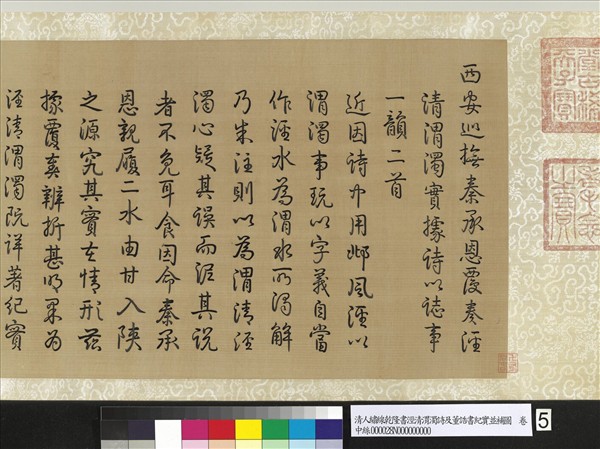 西安巡撫秦承恩覆奏涇
清渭濁實據詩以誌事
一韻二首
近因詩中用邶風涇以
渭濁事玩以字義自當
作涇水為渭水所濁解
乃朱注則以為渭清涇
濁心疑其誤而泥其說
者不免耳食因命秦承
恩親履二水由甘入陝
之源究其實在情形茲
據覆奏辨析甚明果為
涇清渭濁既詳著紀實
堂古稀
天子寶
耄念
之寶
清人繡線乾隆書涇清渭濁詩及董誥書紀實並繡圖 卷
中絲000028N000000000
5